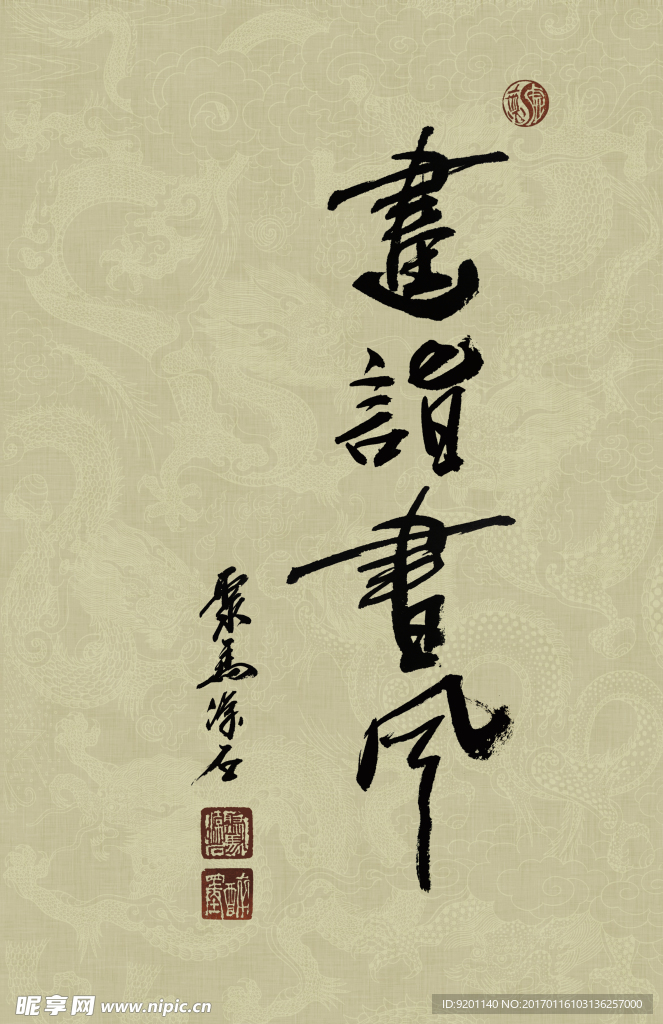 畫詣書風
聚馬石
昵享网 www.nipic.cn
ID:9201140 NO:20170116103136257000